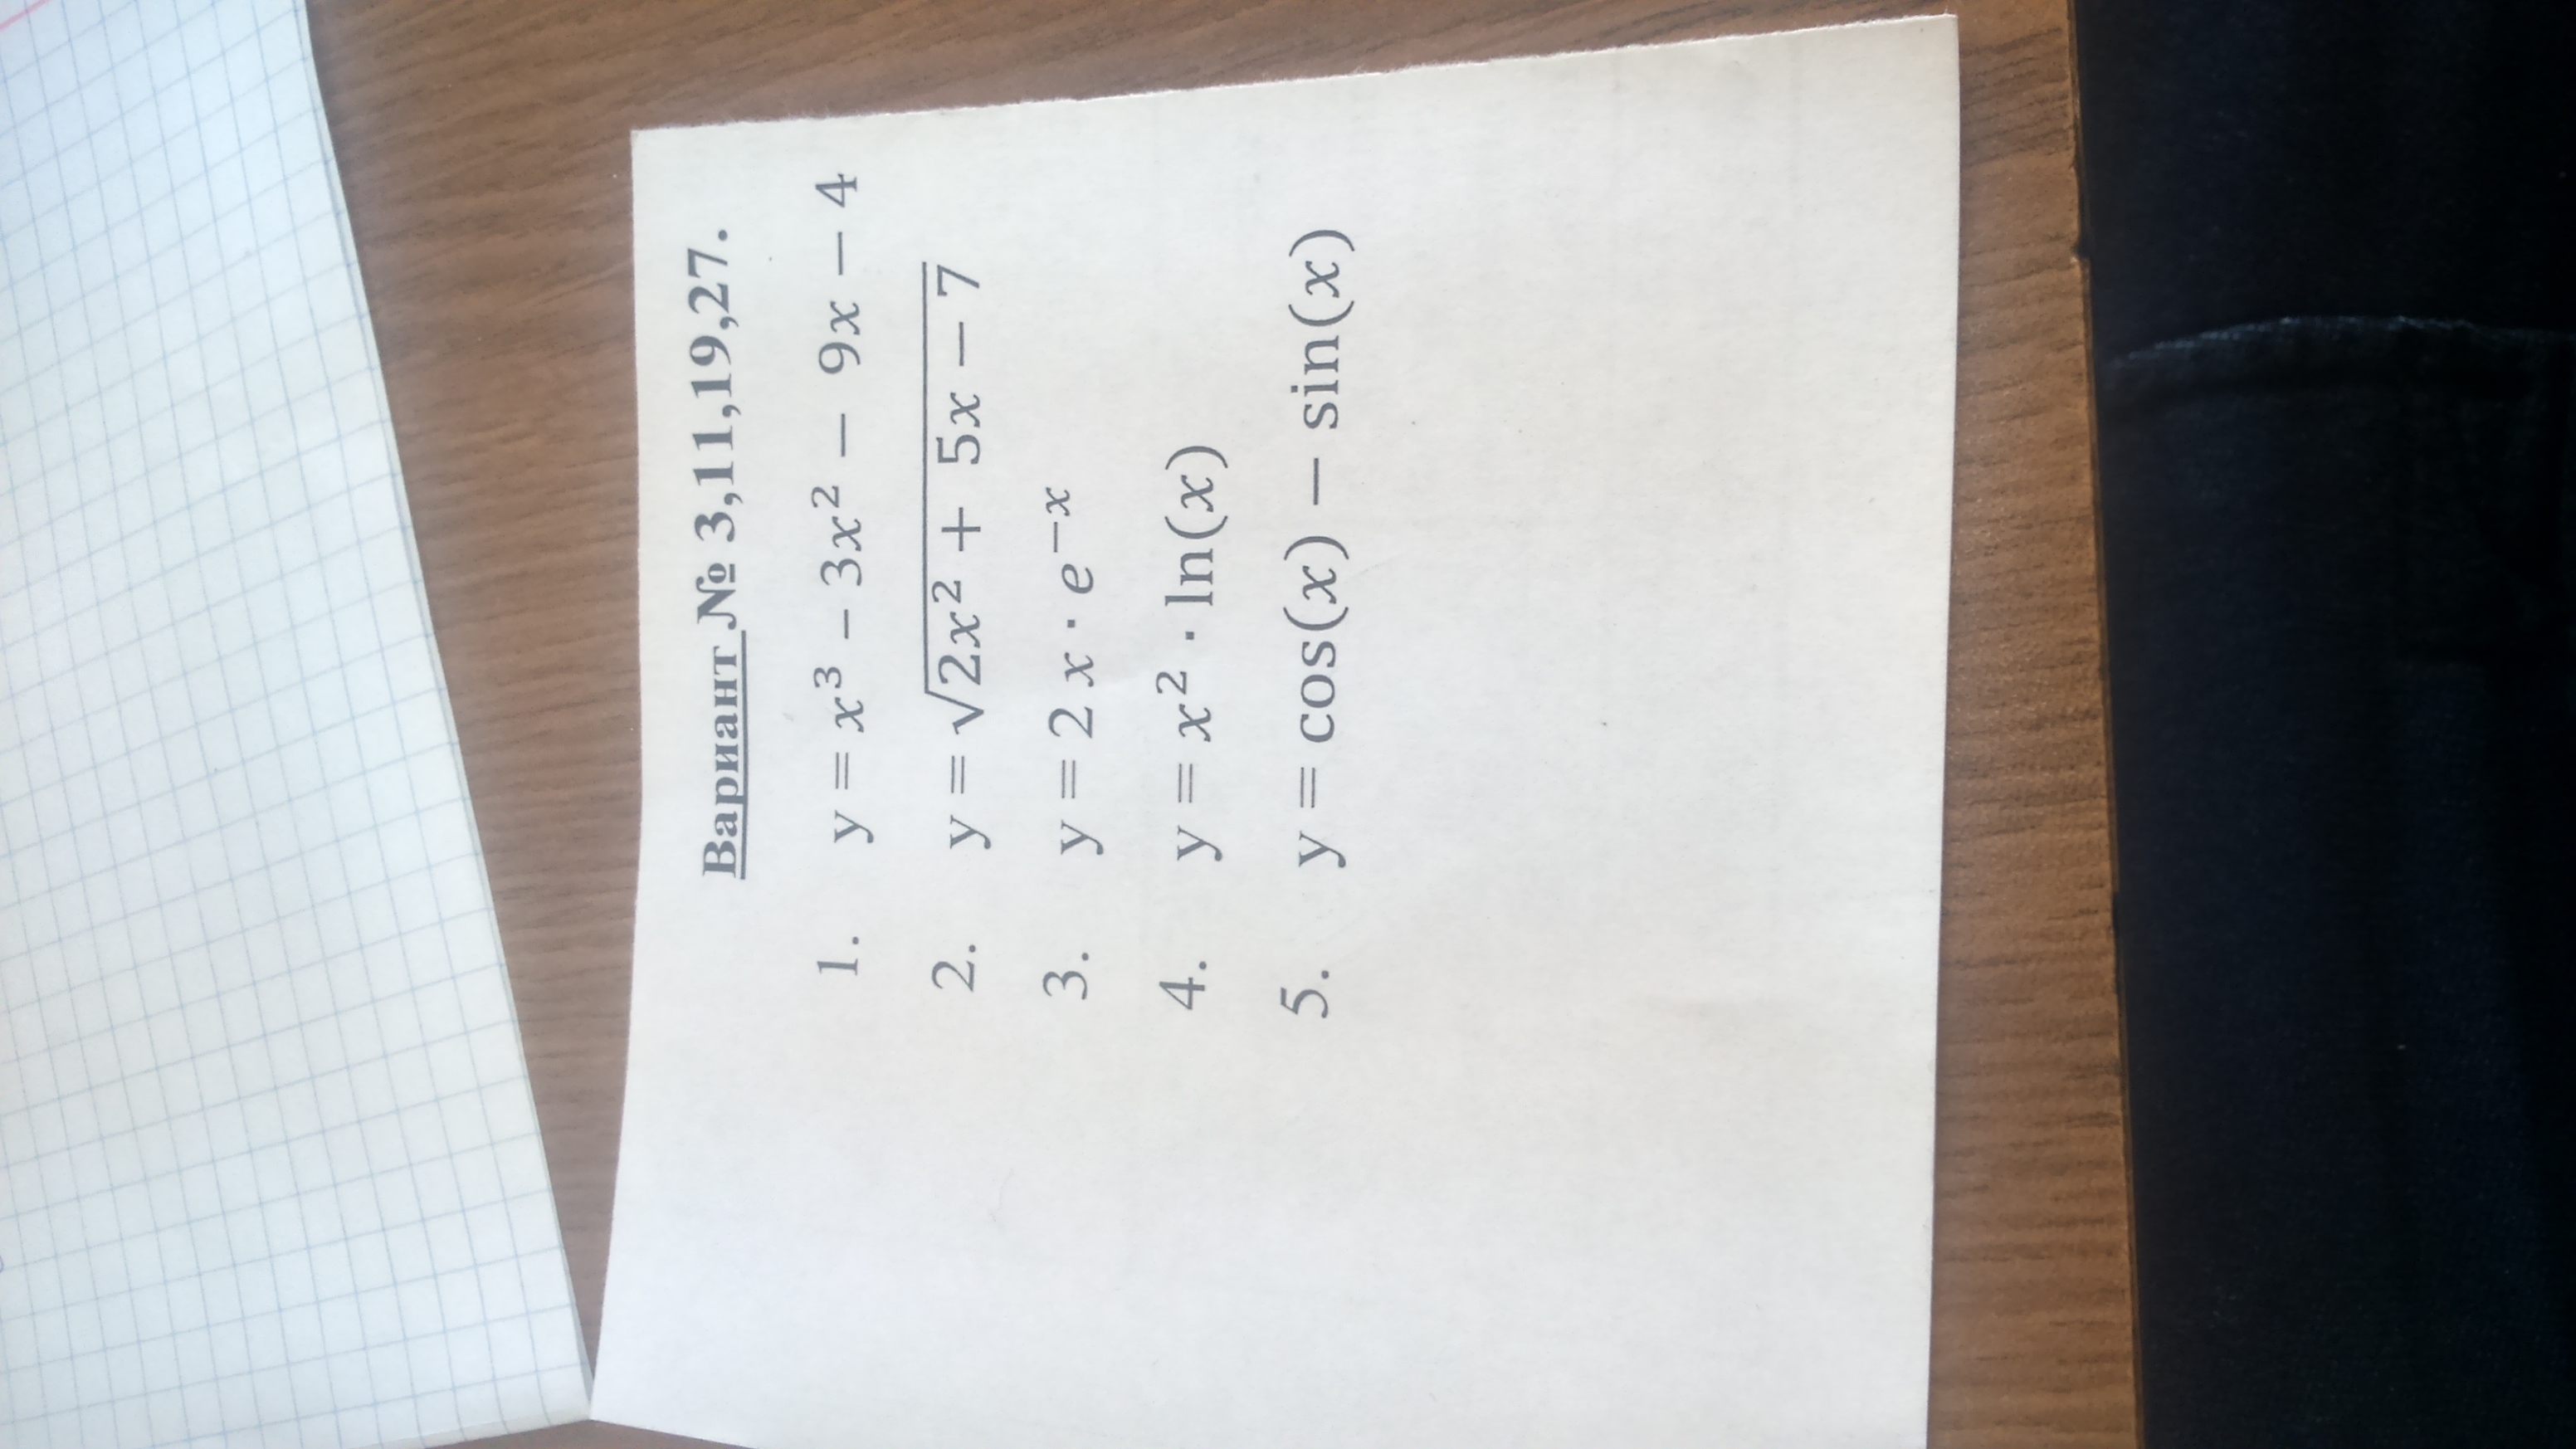 Вариант № 3,11,19,27.
1. y = x³ – 3x² − 9x − 4
2. y = √(2x² + 5x − 7)
3. y = 2 x · e⁻ˣ
4. y = x² · ln(x)
5. y = cos(x) − sin(x)